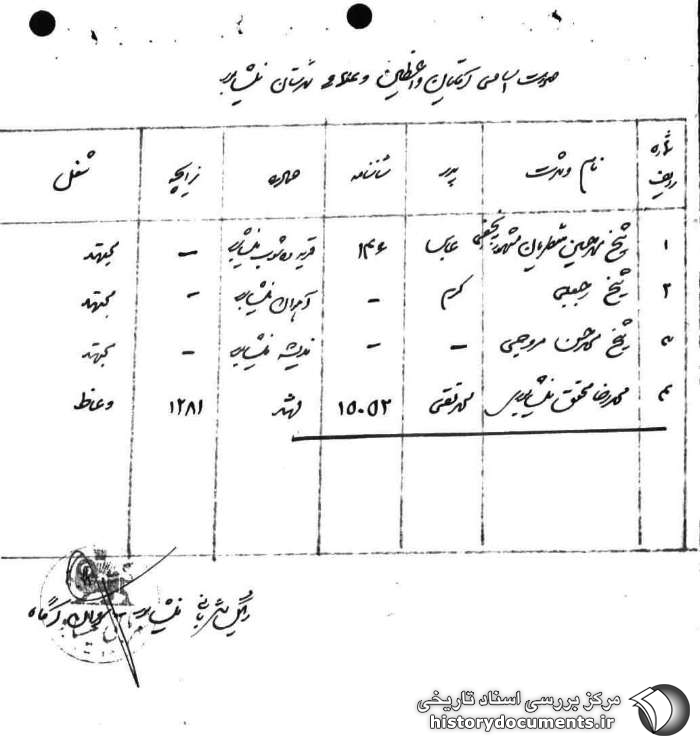 صورت اسامی آقایان واعظین و علماء شهرستان نیشابور
شماره ردیف نام و شهرت پدر شناسنامه صادره زایچه شغل
۱ شیخ محمدحسین عباس ۱۴۶ قریه نیشابور - مجتهد
۲ شیخ رجبعلی کرم - نیشابور - مجتهد
۳ شیخ محمدحسن مروجی - - نیشابور - مجتهد
۴ محمدرضا محقق نیشابوری محمدتقی ۱۵۰۵۲ مشهد ۱۲۸۱ واعظ
رئیس شهربانی نیشابور
مرکز بررسی اسناد تاریخی
historydocuments.ir